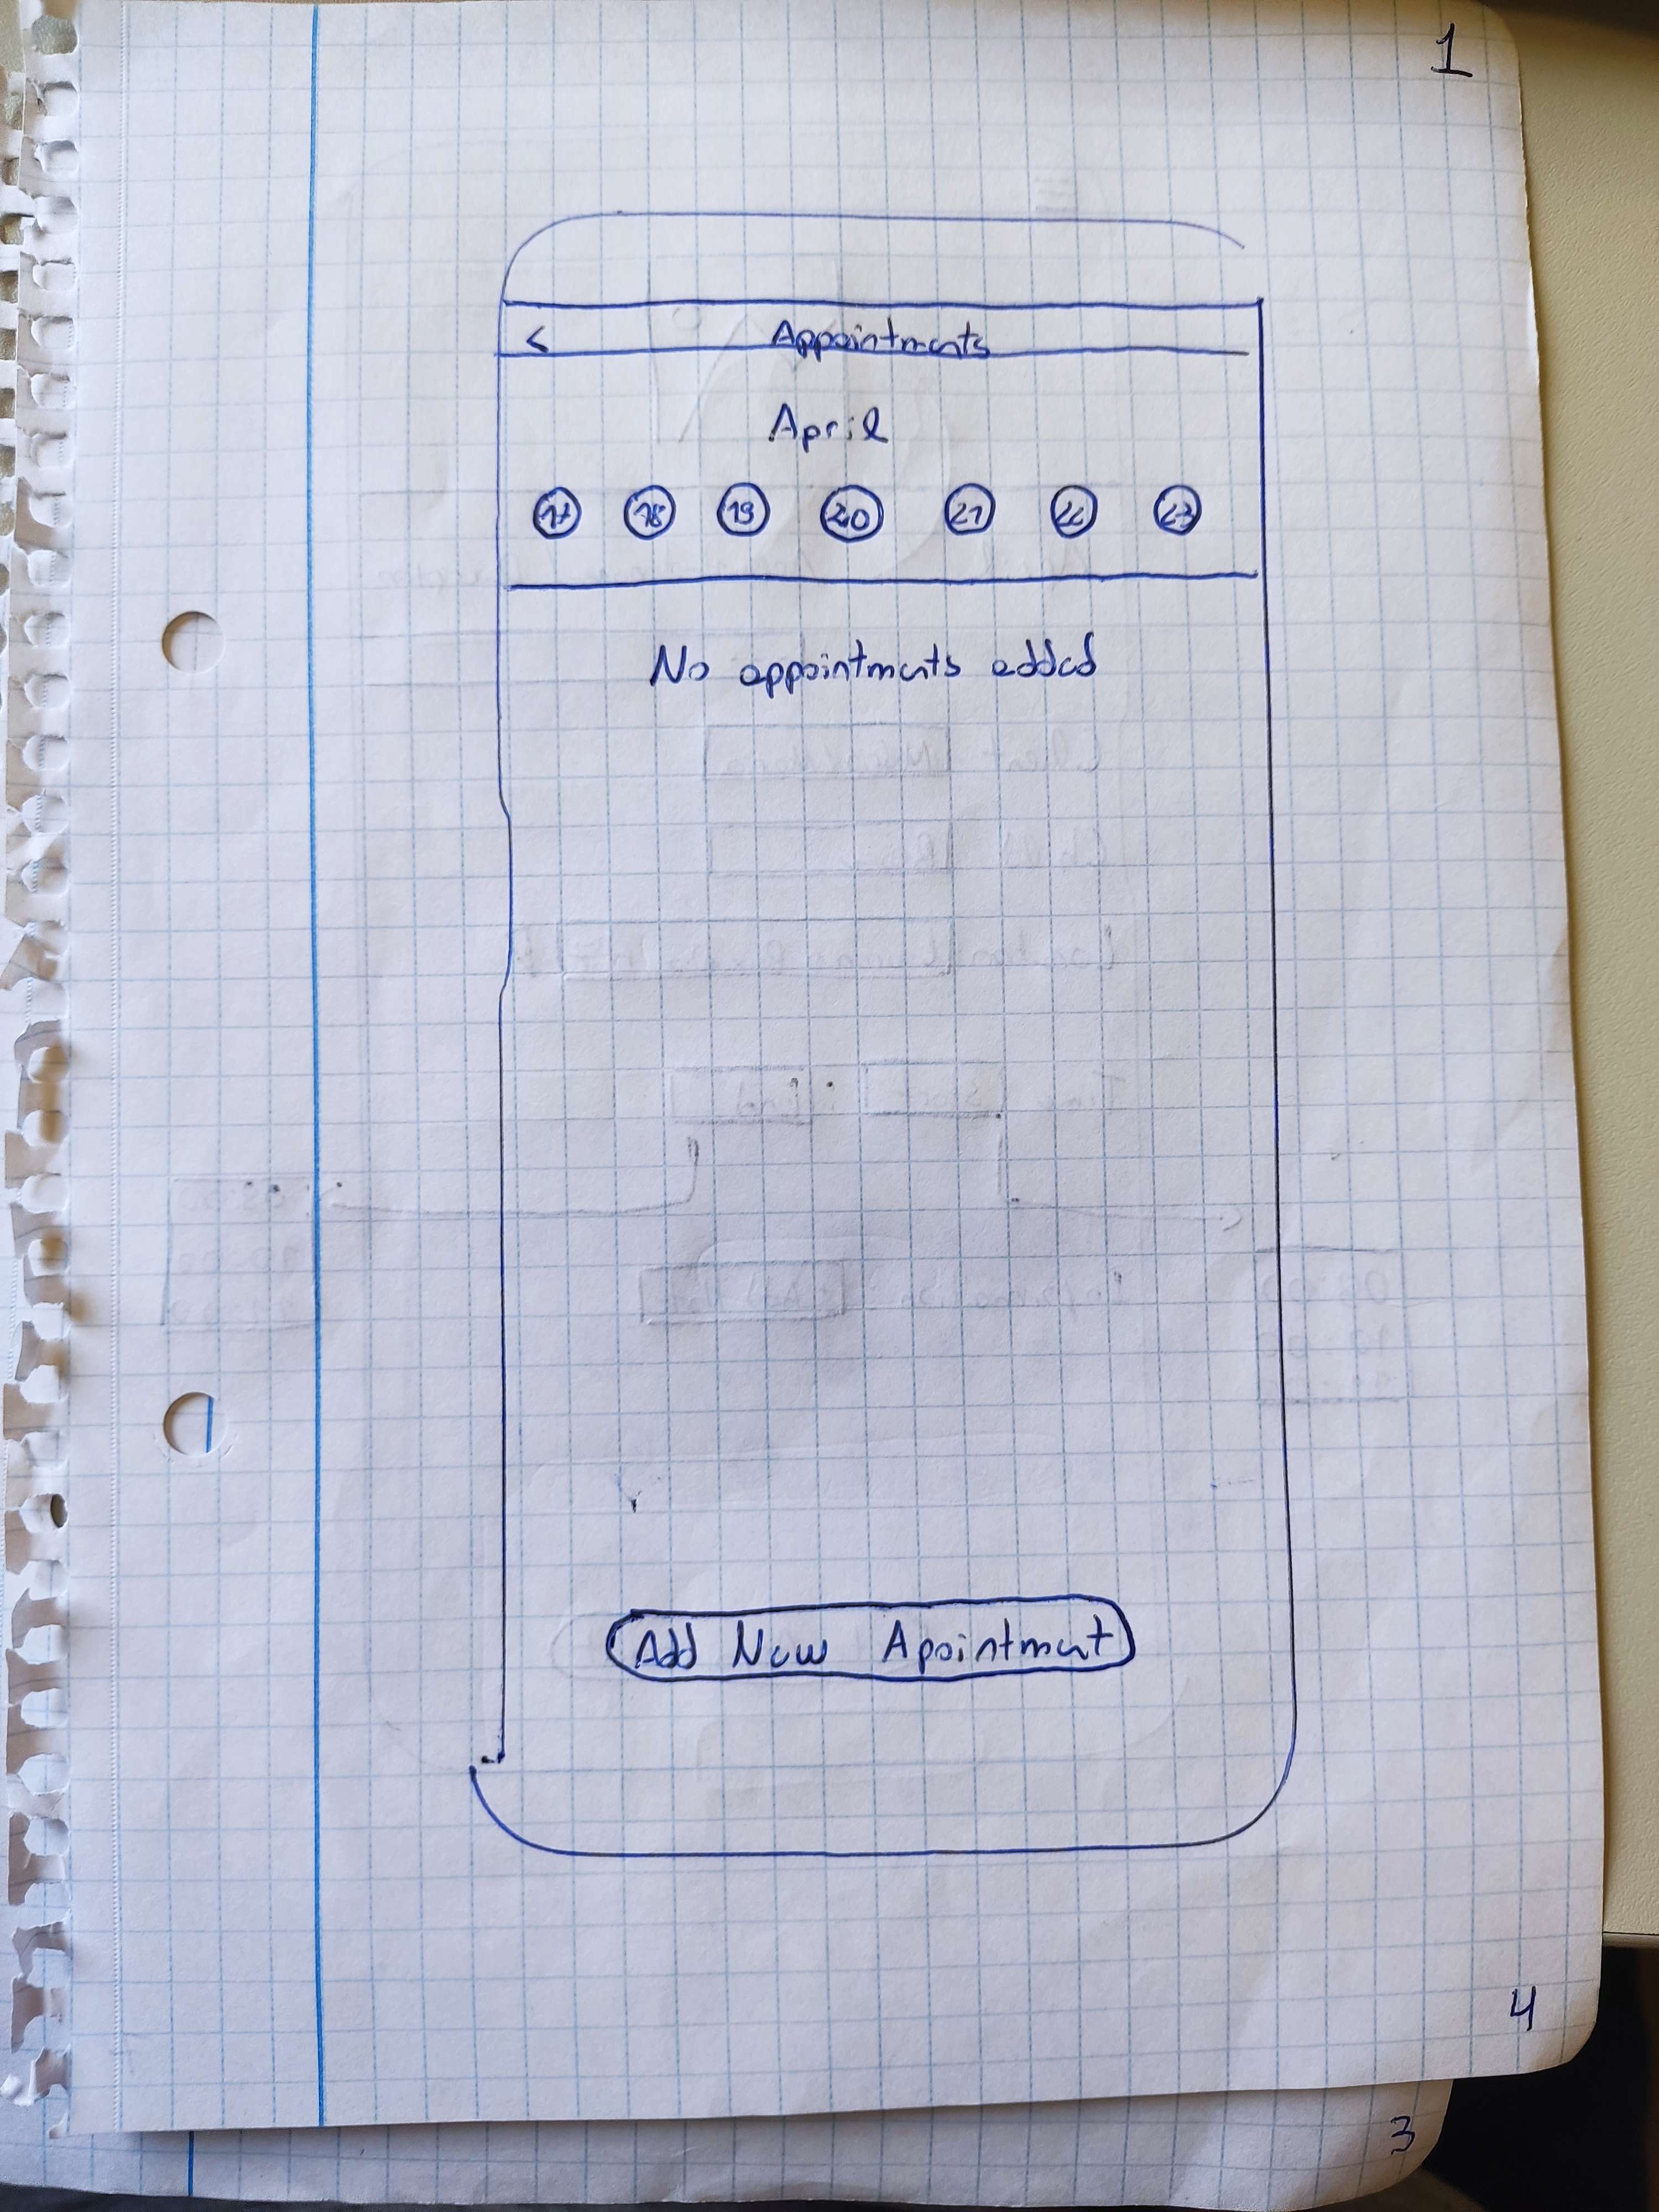 1
< Appointments
April
17 18 19 20 21 22 23
No appointments added
Add New Apointment
4
3